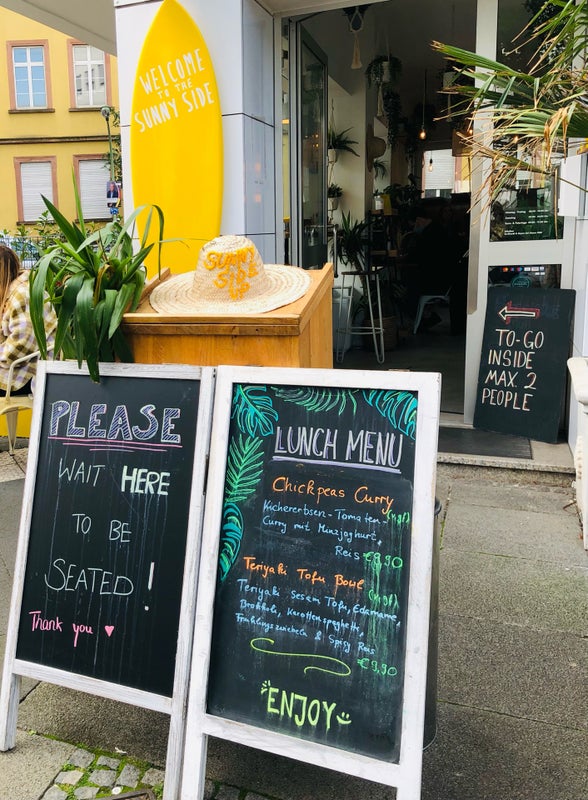 WELCOME
TO THE
SUNNY SIDE
SUNNY
SIDE
TO-GO
INSIDE
MAX. 2
PEOPLE
PLEASE
WAIT HERE
TO BE
SEATED!
Thank you ♥
LUNCH MENU
Chickpeas Curry
(vgl)
Kichererbsen-Tomaten-
Curry mit Minzjoghurt,
Reis €8,90
Teriyaki Tofu Bowl
(vgl)
Teriyaki Sesam Tofu, Edamame,
Brokkoli, Karottenspaghetti,
Frühlingszwiebeln & Spicy Reis
€9,90
ENJOY